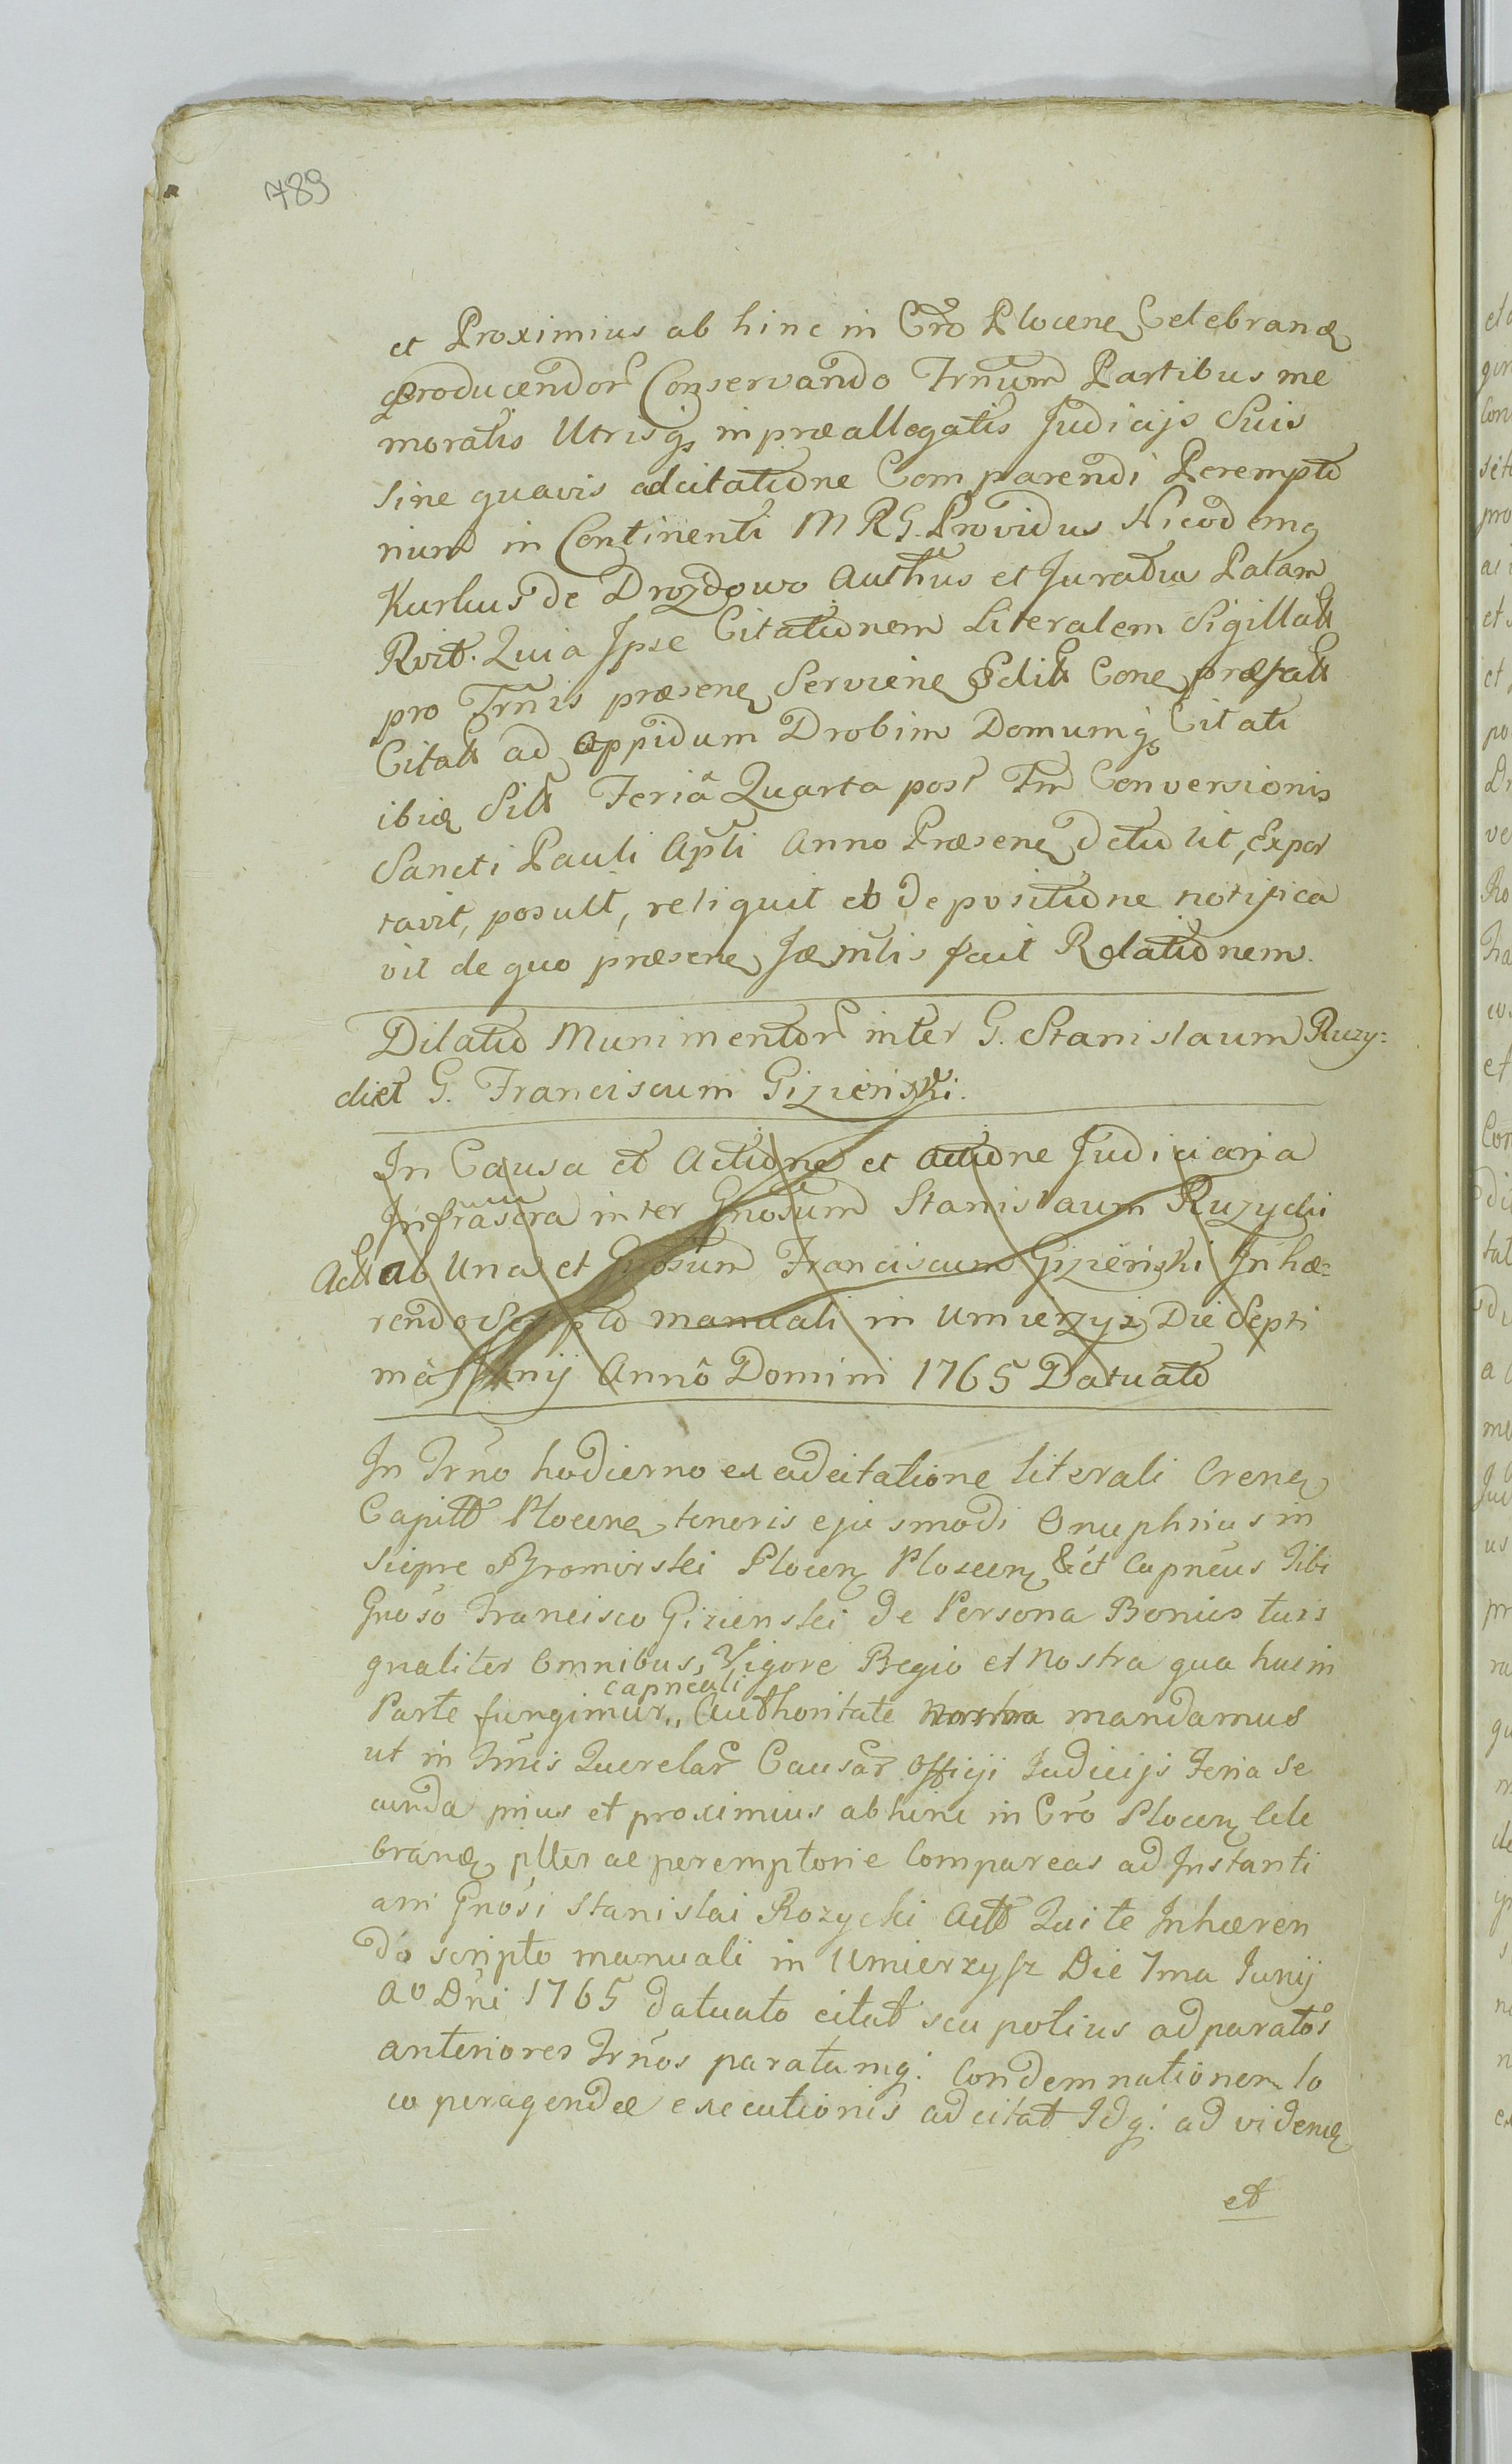 789
et Proximius ab hinc in Cro Plocen Celebrand
producendor Conservando Trnum Partibus me
moratis Utrisq in præallegatis Judicijs Suis
sine quavis adcitatione Comparendi Perempto
rium in Continenti MRG. Providus Nicodemg
Kurkus de Drozdowo Authus et Juratus Palam
Rvit. Quia Jpse Citationem Literalem Sigillatt
pro Trnis præsen Servien Edit Con præfatt
Citatt ad Oppidum Drobim Domumq Citati
ibid Sitt Feriâ Quarta post Fm Conversionis
Sancti Pauli Apli Anno Præsen detulit, Expor
tavit, posuit, reliquit et de positione notifica
vit de quo præsen fecit Relationem.
Dilatio Munimentor inter G. Stanislaum Ruzy:
cki et G. Franciscum Gizienski.
In Causa et Actione et actione Judiciaria
Infrascra inter Gnosum Stanislaum Ruzycki
Act ab Una et Gnosum Franciscum Gizienski Inhæ:
rendo Scripto manuali in Umierzyż Die Septi
mâ Junij Annô Domini 1765 Datuato
In Trno hodierno ex adcitatione literali Cren
Capitt Plocen tenoris ejusmodi Onuphrius in
Siepre Bromirski Plocen Ploscen & et Capneus Tibi
Gnoso Francisco Gizienski de Persona Bonius tuis
gnaliter Omnibus, Vigore Regio et Nostra qua hac in
capneali
Parte fungimur,, Authoritate nostra mandamus
ut in Trnis Querelar Causar Officij Judicijs Feria Se
cunda prius et proximius abhinc in Cro Plocen Cele
brand pltter ac peremptorie Compareas ad Instanti
am Gnosi Stanislai Rozycki Actt Qui te Inhæren
do scripto manuali in Umierzysz Die 7ma Junij
Ao Dni 1765 datuato citat seu potius ad paratos
anteriores Trnos paratamq: Condemnationem lo
co peragendæ executionis adcitat Idq: ad videnđ
et